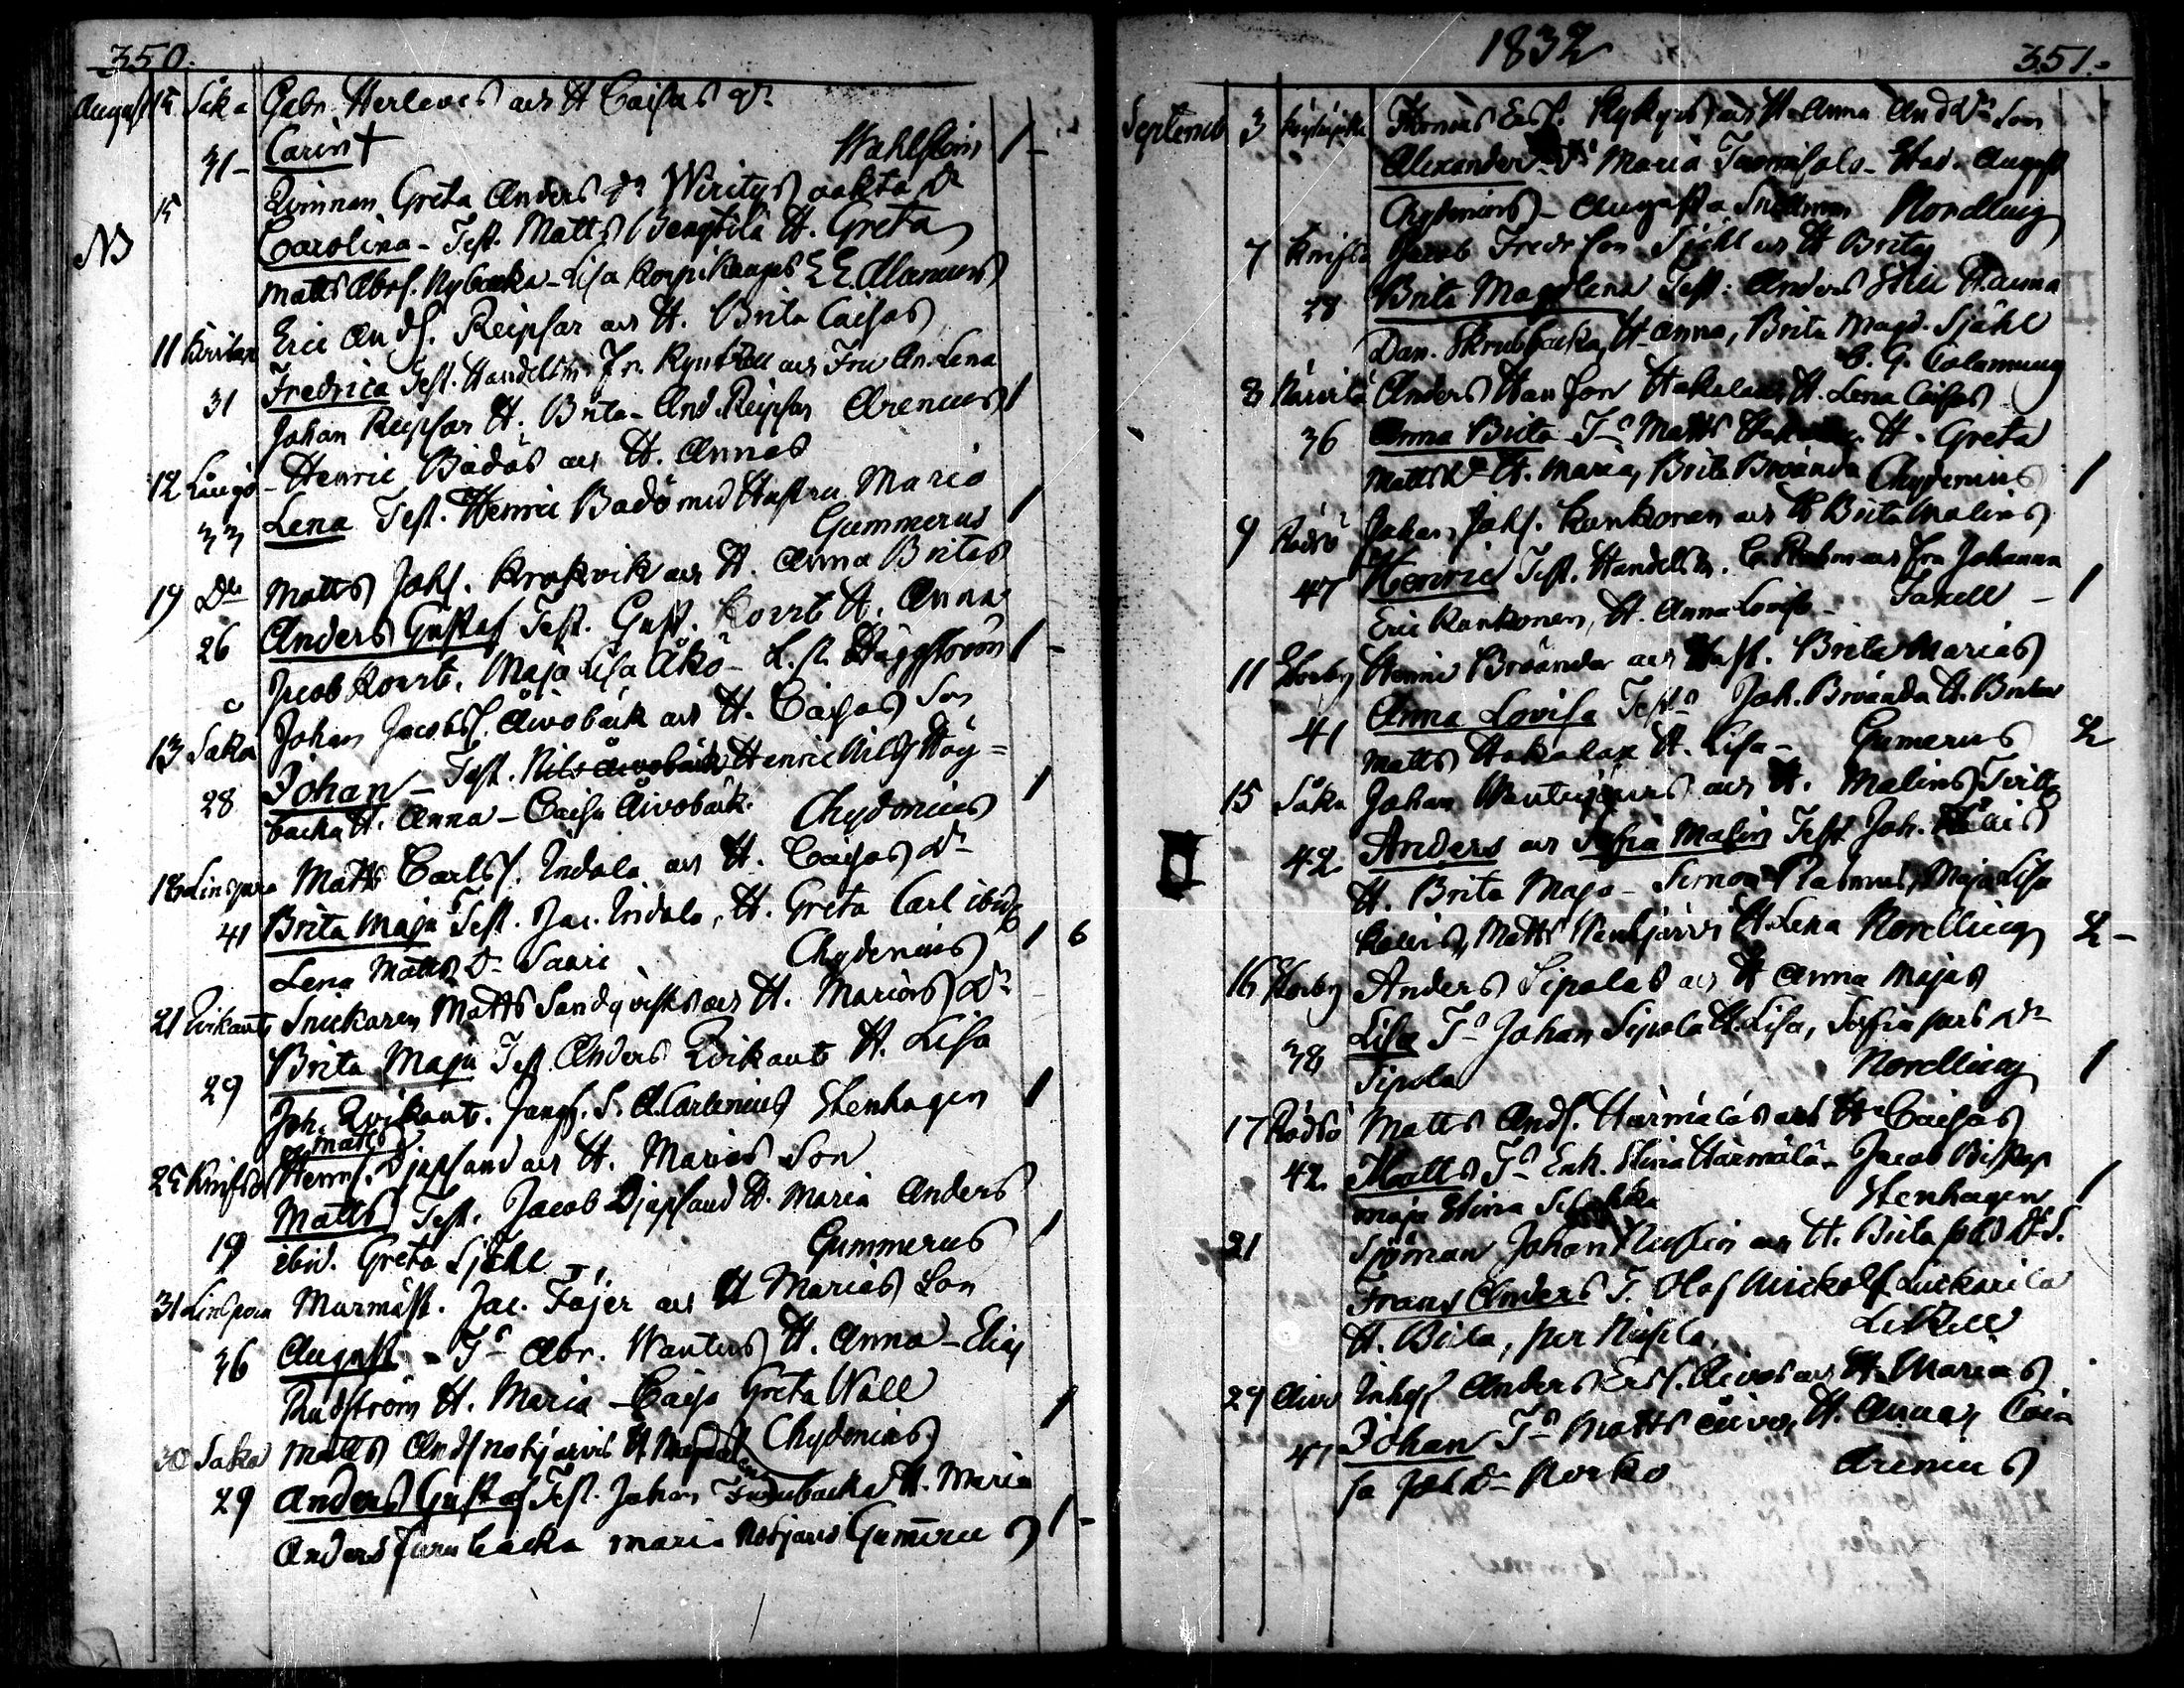 350.
August 15 Såka Gabr. Herleves och H Caisas dr
31 - Carin † Wahlstein 1 -
15 Qvinnan Greta Anders dr Wiritys oäkta dr
NB Carolina - Test. Matts Bengtila H. Greta
Matts Abrs. Nybacka - Lisa E E. Alcenius
11 Eric Ands. Reipsar och H. Brita Caisas
31 Fredrica Test. Handelsm. Fr. och Fru An. Lena
Johan Reipsar H. Brita - And. Reipsar Arenius 1
12 Långö - Henric Bådös och H. Annas
33 Lena Test. Henric Badö med Hustru Maria
Gummerus 1
19 Do Matts Johs. Krokvik och H. Anna Britas
26 Anders Gustaf Test. Gust. H. Anna
Jacob Maja Lisa Åkö - L. st. Häggström 1 -
13 Såka Johan Jacobs. Åivobäck och H. Caisas Son
28 Johan - Test. Henric Höy=
backa H. Anna - Caisa Åivobäck. Chydenius 1
18 Linspera Matts Carls. Indola och H. Caisas dr
41 Brita Maja Test. Jac. Indola, H. Greta Carl ibid
Lena Matts dr Saari Chydenius 1 6
21 Qvikant Snickaren Matts Sandqvists och H. Marias dr
29 Brita Maja Test Anders Qvikant H. Lisa
Joh. Qvikant. Jungf. S. A. Carlenius Stenhagen 1
Matts
25 Knifsd Henrs. Djupsund och H. Marias Son
19 Matts Test. Jacob Djupsund H. Maria Anders
ibid. Greta Sjöhl Gummerus 1
31 Linspera Murmäst. Jac. Fajer och H Marias Son
36 August - Ts Abr. Wantus H. Anna - Elias
Rudström H. Maria - Cajsa Greta Wall
Chydenius 1
30 Såka Matts Ands Nobjarvis H
29 Anders Gustaf Test. Johan Furubacka H. Maria
Anders Furubacka Maria Nobjarvi Gummerus 1 -
1832
351.
Septemb 3 Thomas Ers. Kykyris och H. Anna And dr Son
Alexander - Maria - Stud. August
Chydenius - Augusta Snellman Nordling
7 Knifsd Jacob Fredrson Sjöhl och H Brita
28 Brita Magdlena Test: Anders Still H anna
Dan. Skrubbacka, H. anna, Brita Magd. Sjöhl
C. G. Calamnius
8 Anders Hansson Hakalax H. Lena Caisas
36 Anna Brita - Ts Matts H. Greta
Matts dr H. Maria, Brita Broända Chydenius 1
9 Rödsö Johan Johs. Kankonen och H Brita Malins
47 Henric Test. Handelsm. C. och Fru Johanna
Eric Kankonen, H. Anna Lovisa - 1
11 Storby Henric Broända och Hust. Brita Marias
41 Anna Lovisa Test Joh. Broända H. Brita
Matts Hakalax H. Lisa - Gumerus 2
15 Såka Johan Wentusjärvis och H. Malins Tvill
42 Anders och Sofia Malin Test Joh.
H. Brita Maja - Simon Rasmus, Maja Lisa
Matts H. Lena Nordling 2 -
16 Storby Anders Sipolas och H Anna Majas
38 Lisa Ts Johan Sipola H. Lisa, Sofia Pers dr
Sipola Nordling 1
17 Rödsö Matts Ands. Härmäläs och H Caisas
42. Matts Ts Enk. Stina Härmälä - Jacob Biskop
Maja Stina Stenhagen 1
21 Sjöman Johan och H. Brita
Frans Anders T. Olof Nickols.
H. Brita, Per
29 Åivo Inhys Anders Ers. Åivos och H. Marias
47 Johan Ts Matts Åivo, H. Anna, Cai
sa Joh dr Korko Arenius